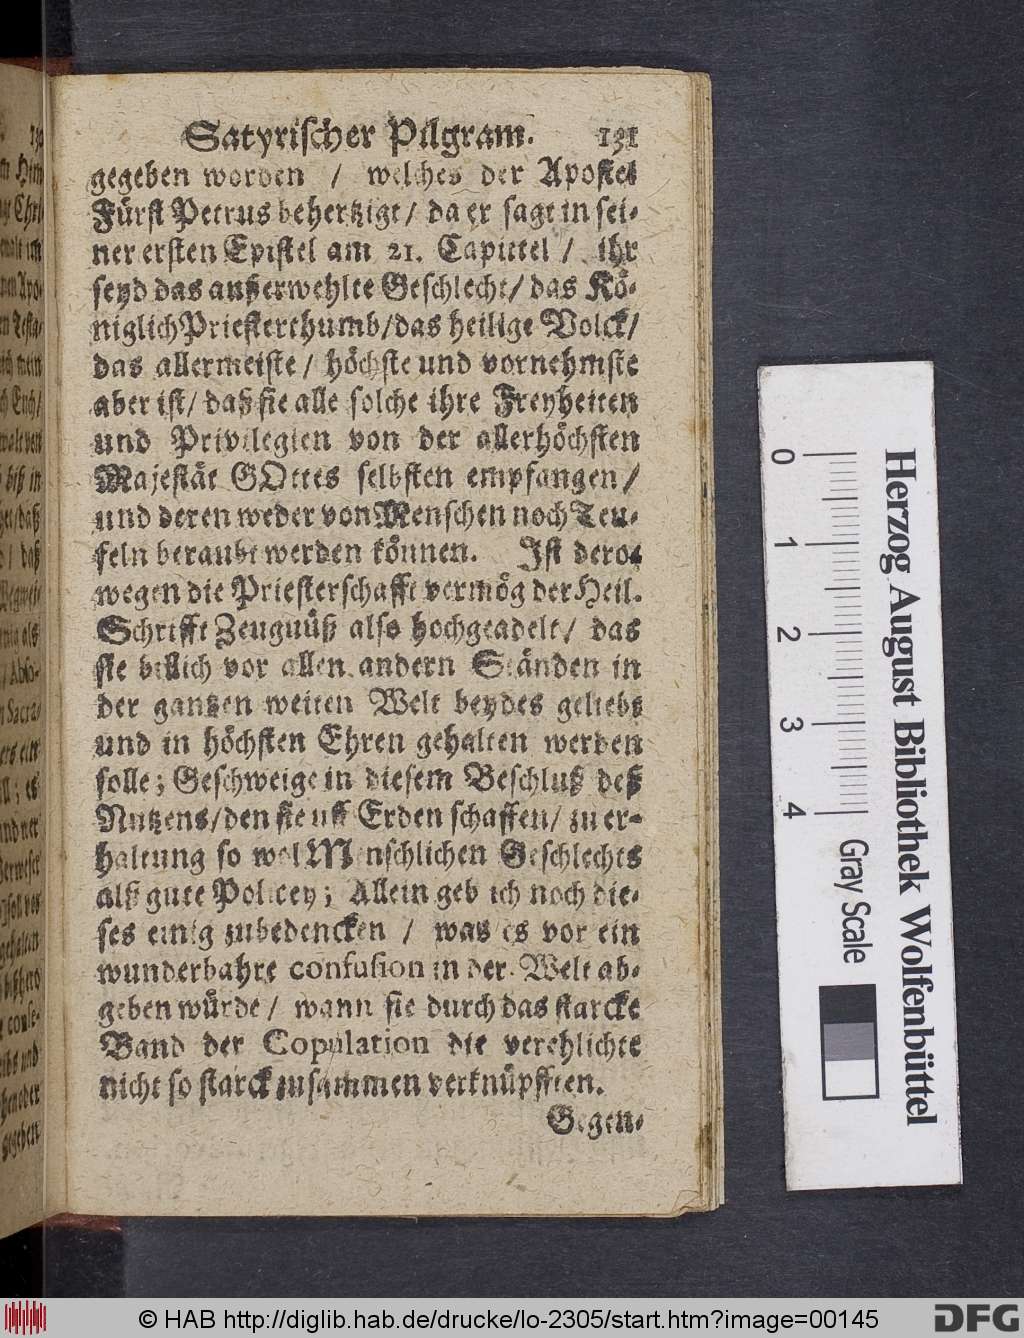 Satyrischer Pilgram. 131
gegeben worden / welches der Apostel
Fürst Petrus behertziget / da er sagt in sei-
ner ersten Epistel am 21. Capittel / ihr
seyd das außerwehlte Geschlecht / das Kö-
niglich Priesterthumb / das heilige Volck /
das allermeiste / höchste und vornehmste
aber ist / daß sie alle solche ihre Freyheiten
und Privilegien von der allerhöchsten
Majestät GOttes selbsten empfangen /
und deren weder von Menschen noch Teu-
feln beraubt werden können. Ist dero-
wegen die Priesterschafft vermög der Heil.
Schrifft Zeugnüß also hochgeadelt / das
sie billich vor allen andern Ständen in
der gantzen weiten Welt beydes geliebt
und in höchsten Ehren gehalten werden
solle; Geschweige in diesem Beschluß deß
Nutzens / den sie uff Erden schaffen / zu er-
haltung so wol Menschlichen Geschlechts
alß gute Policey; Allein geb ich noch die-
ses einig zubedencken / was es vor ein
wunderbahre confusion in der Welt ab-
geben würde / wann sie durch das starcke
Band der Copulation die verehlichte
nicht so starck zusammen verknüpfften.
Gegen-
Herzog August Bibliothek Wolfenbüttel
0 1 2 3 4 Gray Scale
© HAB http://diglib.hab.de/drucke/lo-2305/start.htm?image=00145
DFG